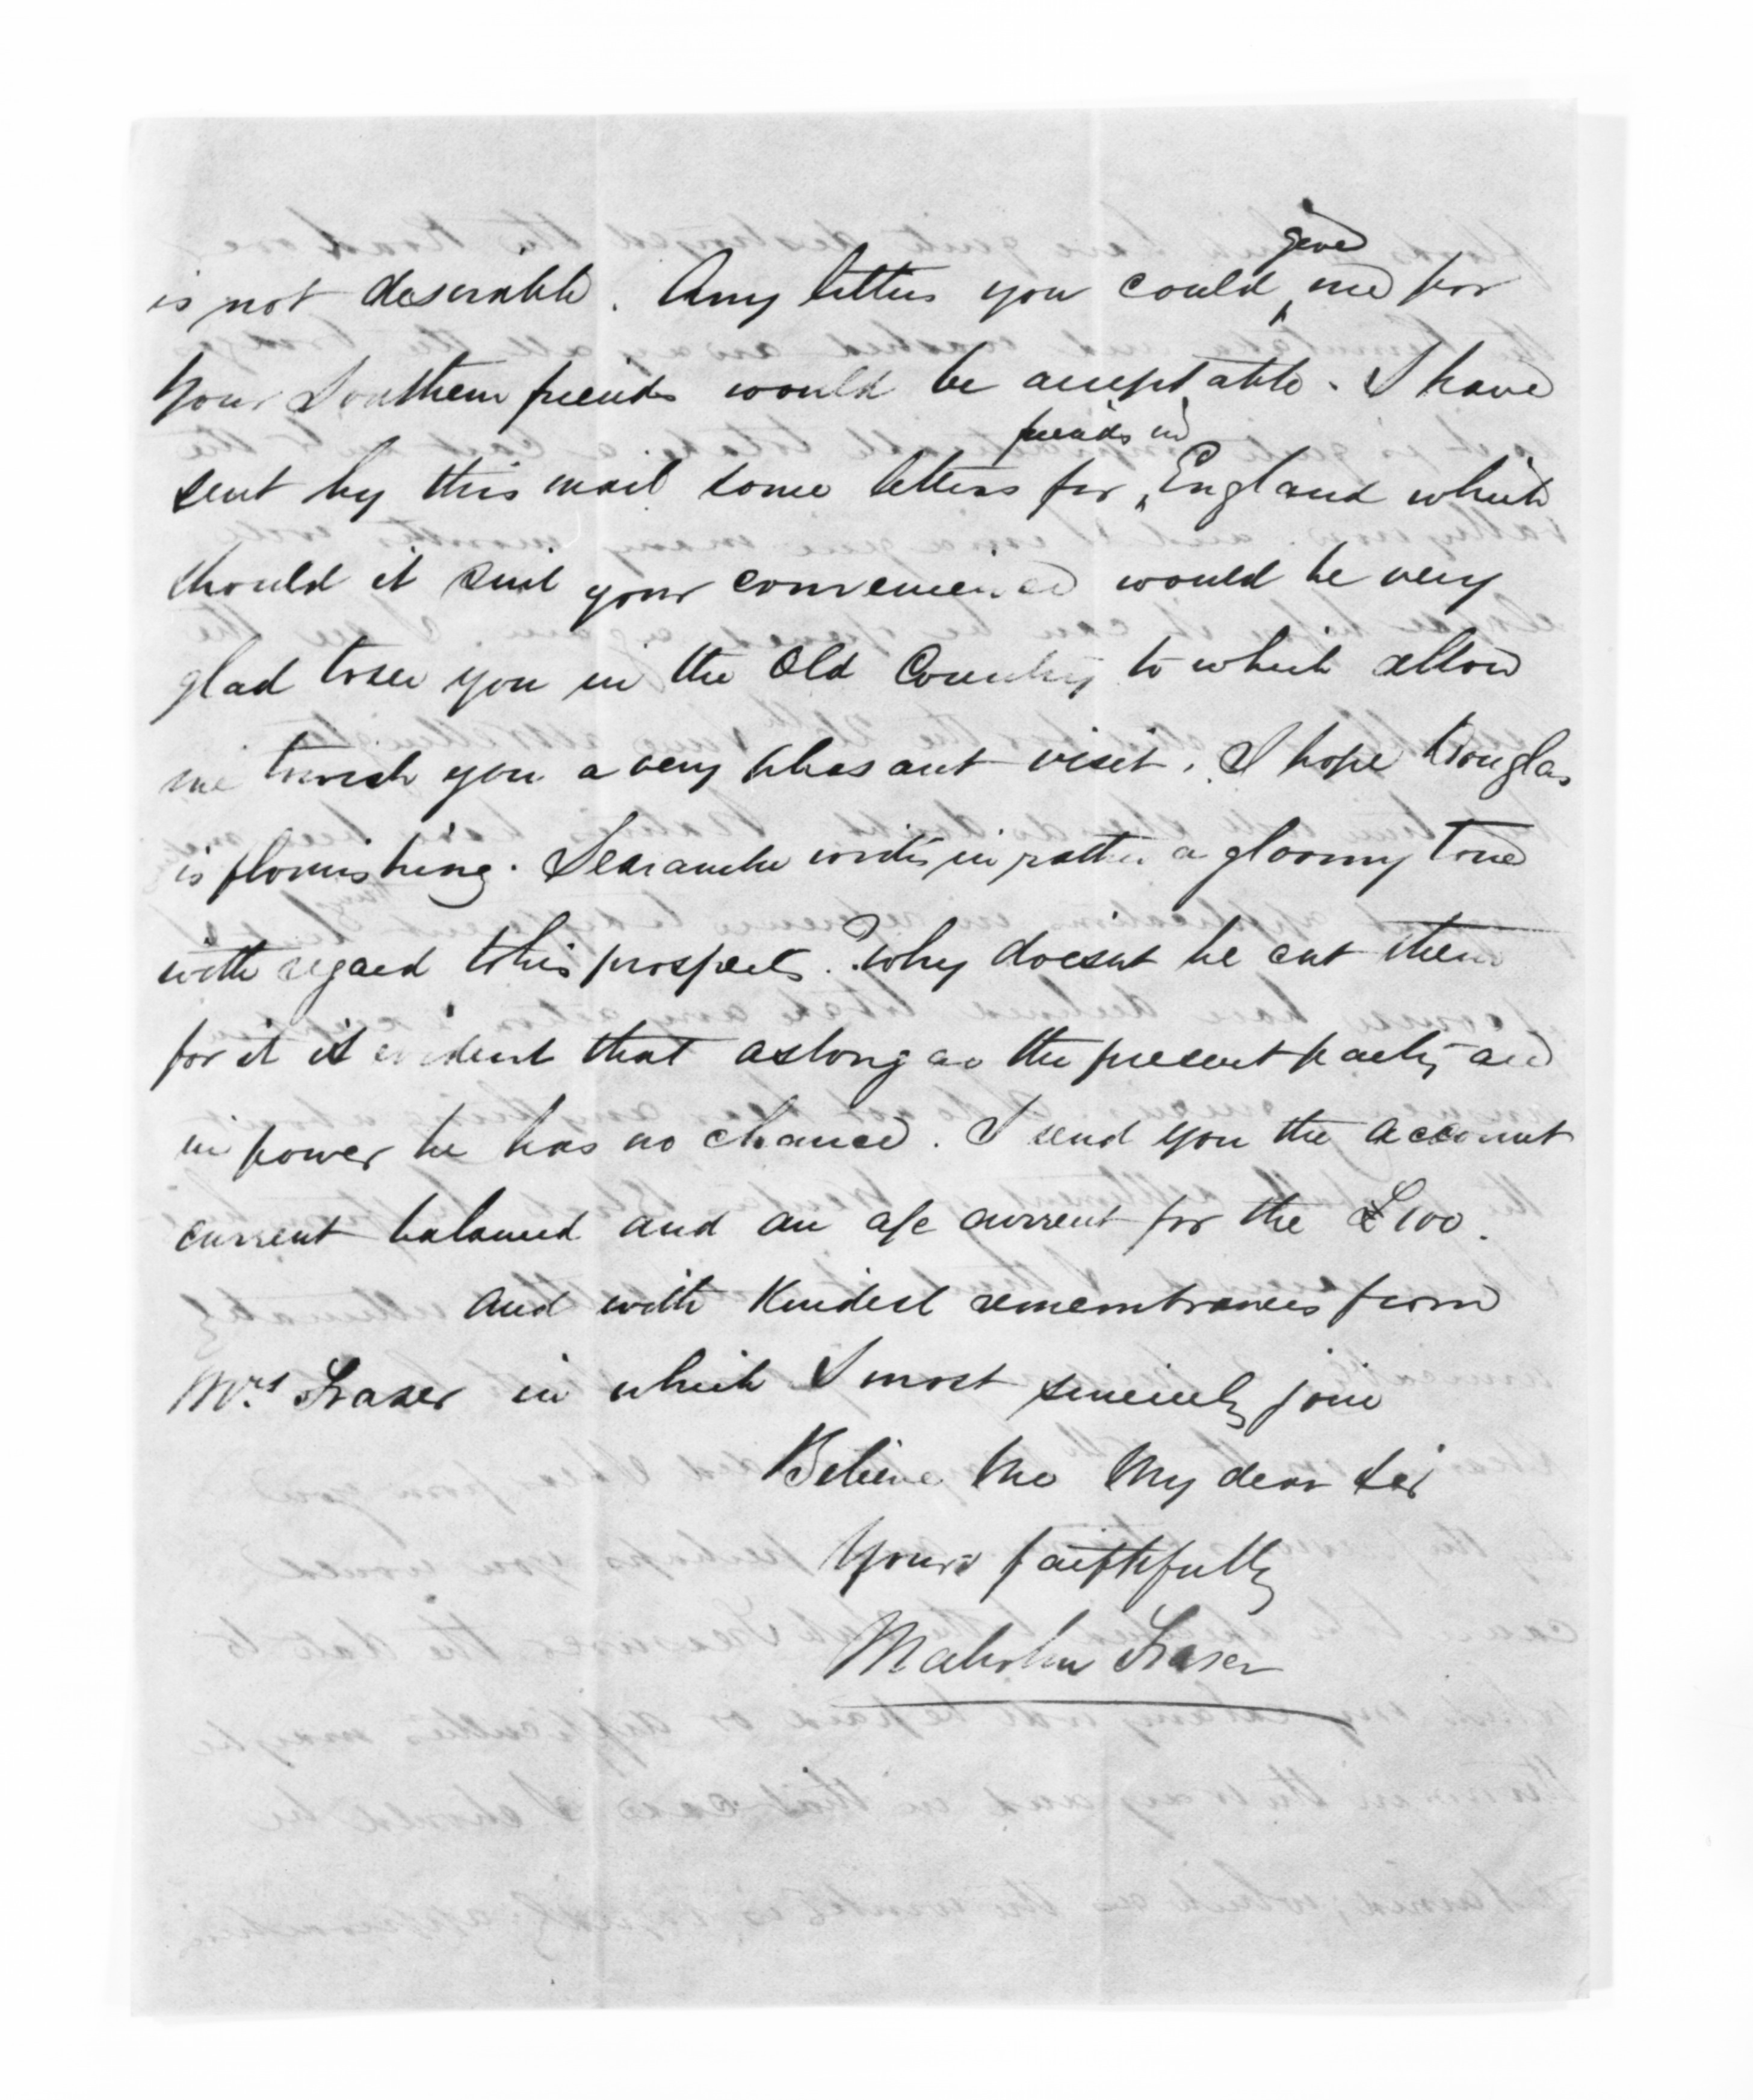 is not desirable. Any letters you could give me for
your Southern friends would be acceptable. I have
sent by this mail some letters for friends in England which
should it suit your convenience would be very
glad to see you in the Old Country to which allow
me to wish you a very pleasant visit. I hope Douglas
is flourishing. Searancke writes in rather a gloomy tone
with regard to his prospects. Why doesnt he cut them
for it is evident that as long as the present party are
in power he has no chance. I send you the account
current balanced and an a/c current for the £100.
And with Kindest remembrances from
Mrs Fraser in which I most sincerely join
Believe Me My dear Sir
Yours faithfully
Malcolm Fraser